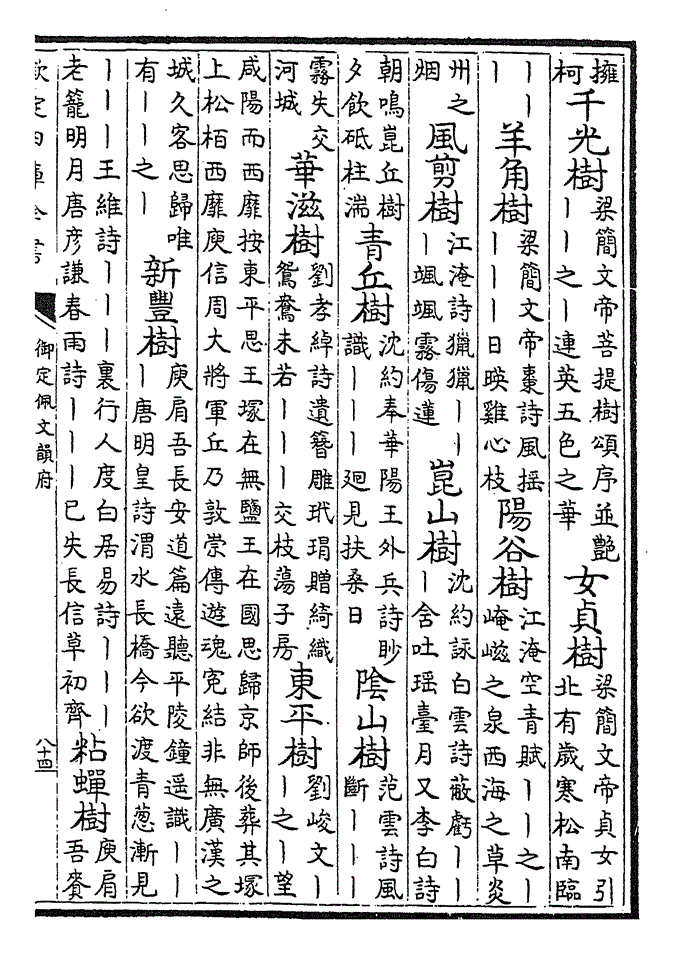 擁柯 千光樹 梁簡文帝菩提樹頌序並艷丨丨之丨連英五色之華 女貞樹 梁簡文帝貞女引北有歲寒松南臨
丨丨丨 羊角樹 梁簡文帝棗詩風揺丨丨丨日暎雞心枝 陽谷樹 江淹空青賦丨丨之丨崦嵫之泉西海之草炎
州之烟 風剪樹 江淹詩獵獵丨丨丨颯颯霧傷蓮 崑山樹 沈約詠白雲詩蔽虧丨丨丨含吐瑶臺月又李白詩
朝鳴崑丘樹夕飲砥柱湍 青丘樹 沈約奉華陽王外兵詩眇識丨丨丨廻見扶桑日 陰山樹 范雲詩風斷丨丨丨
霧失交河城 華滋樹 劉孝綽詩遺簪雕玳瑁贈綺織鴛鴦未若丨丨丨交枝蕩子房 東平樹 劉峻文丨丨之丨望
咸陽而西靡按東平思王塚在無鹽王在國思歸京師後葬其塚上松栢西靡庾信周大將軍丘乃敦崇傳遊魂寃結非無廣漢之
城久客思歸唯有丨丨之丨 新豐樹 庾肩吾長安道篇遠聽平陵鐘遥識丨丨丨唐明皇詩渭水長橋今欲渡青葱漸見
丨丨丨王維詩丨丨丨裏行人度白居易詩丨丨丨老籠明月唐彦謙春雨詩丨丨丨已失長信草初齊 粘蟬樹 庾肩吾賚
欽定四庫全書 御定佩文韻府 八十四